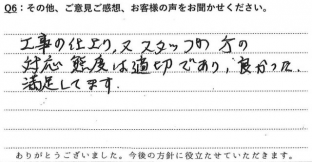 Q6：その他、ご意見ご感想、お客様の声をお聞かせください。
工事の仕上り，又スタッフの方の
対応 態度は適切であり，良かった．
満足してます．
ありがとうございました。今後の方針に役立たせていただきます。